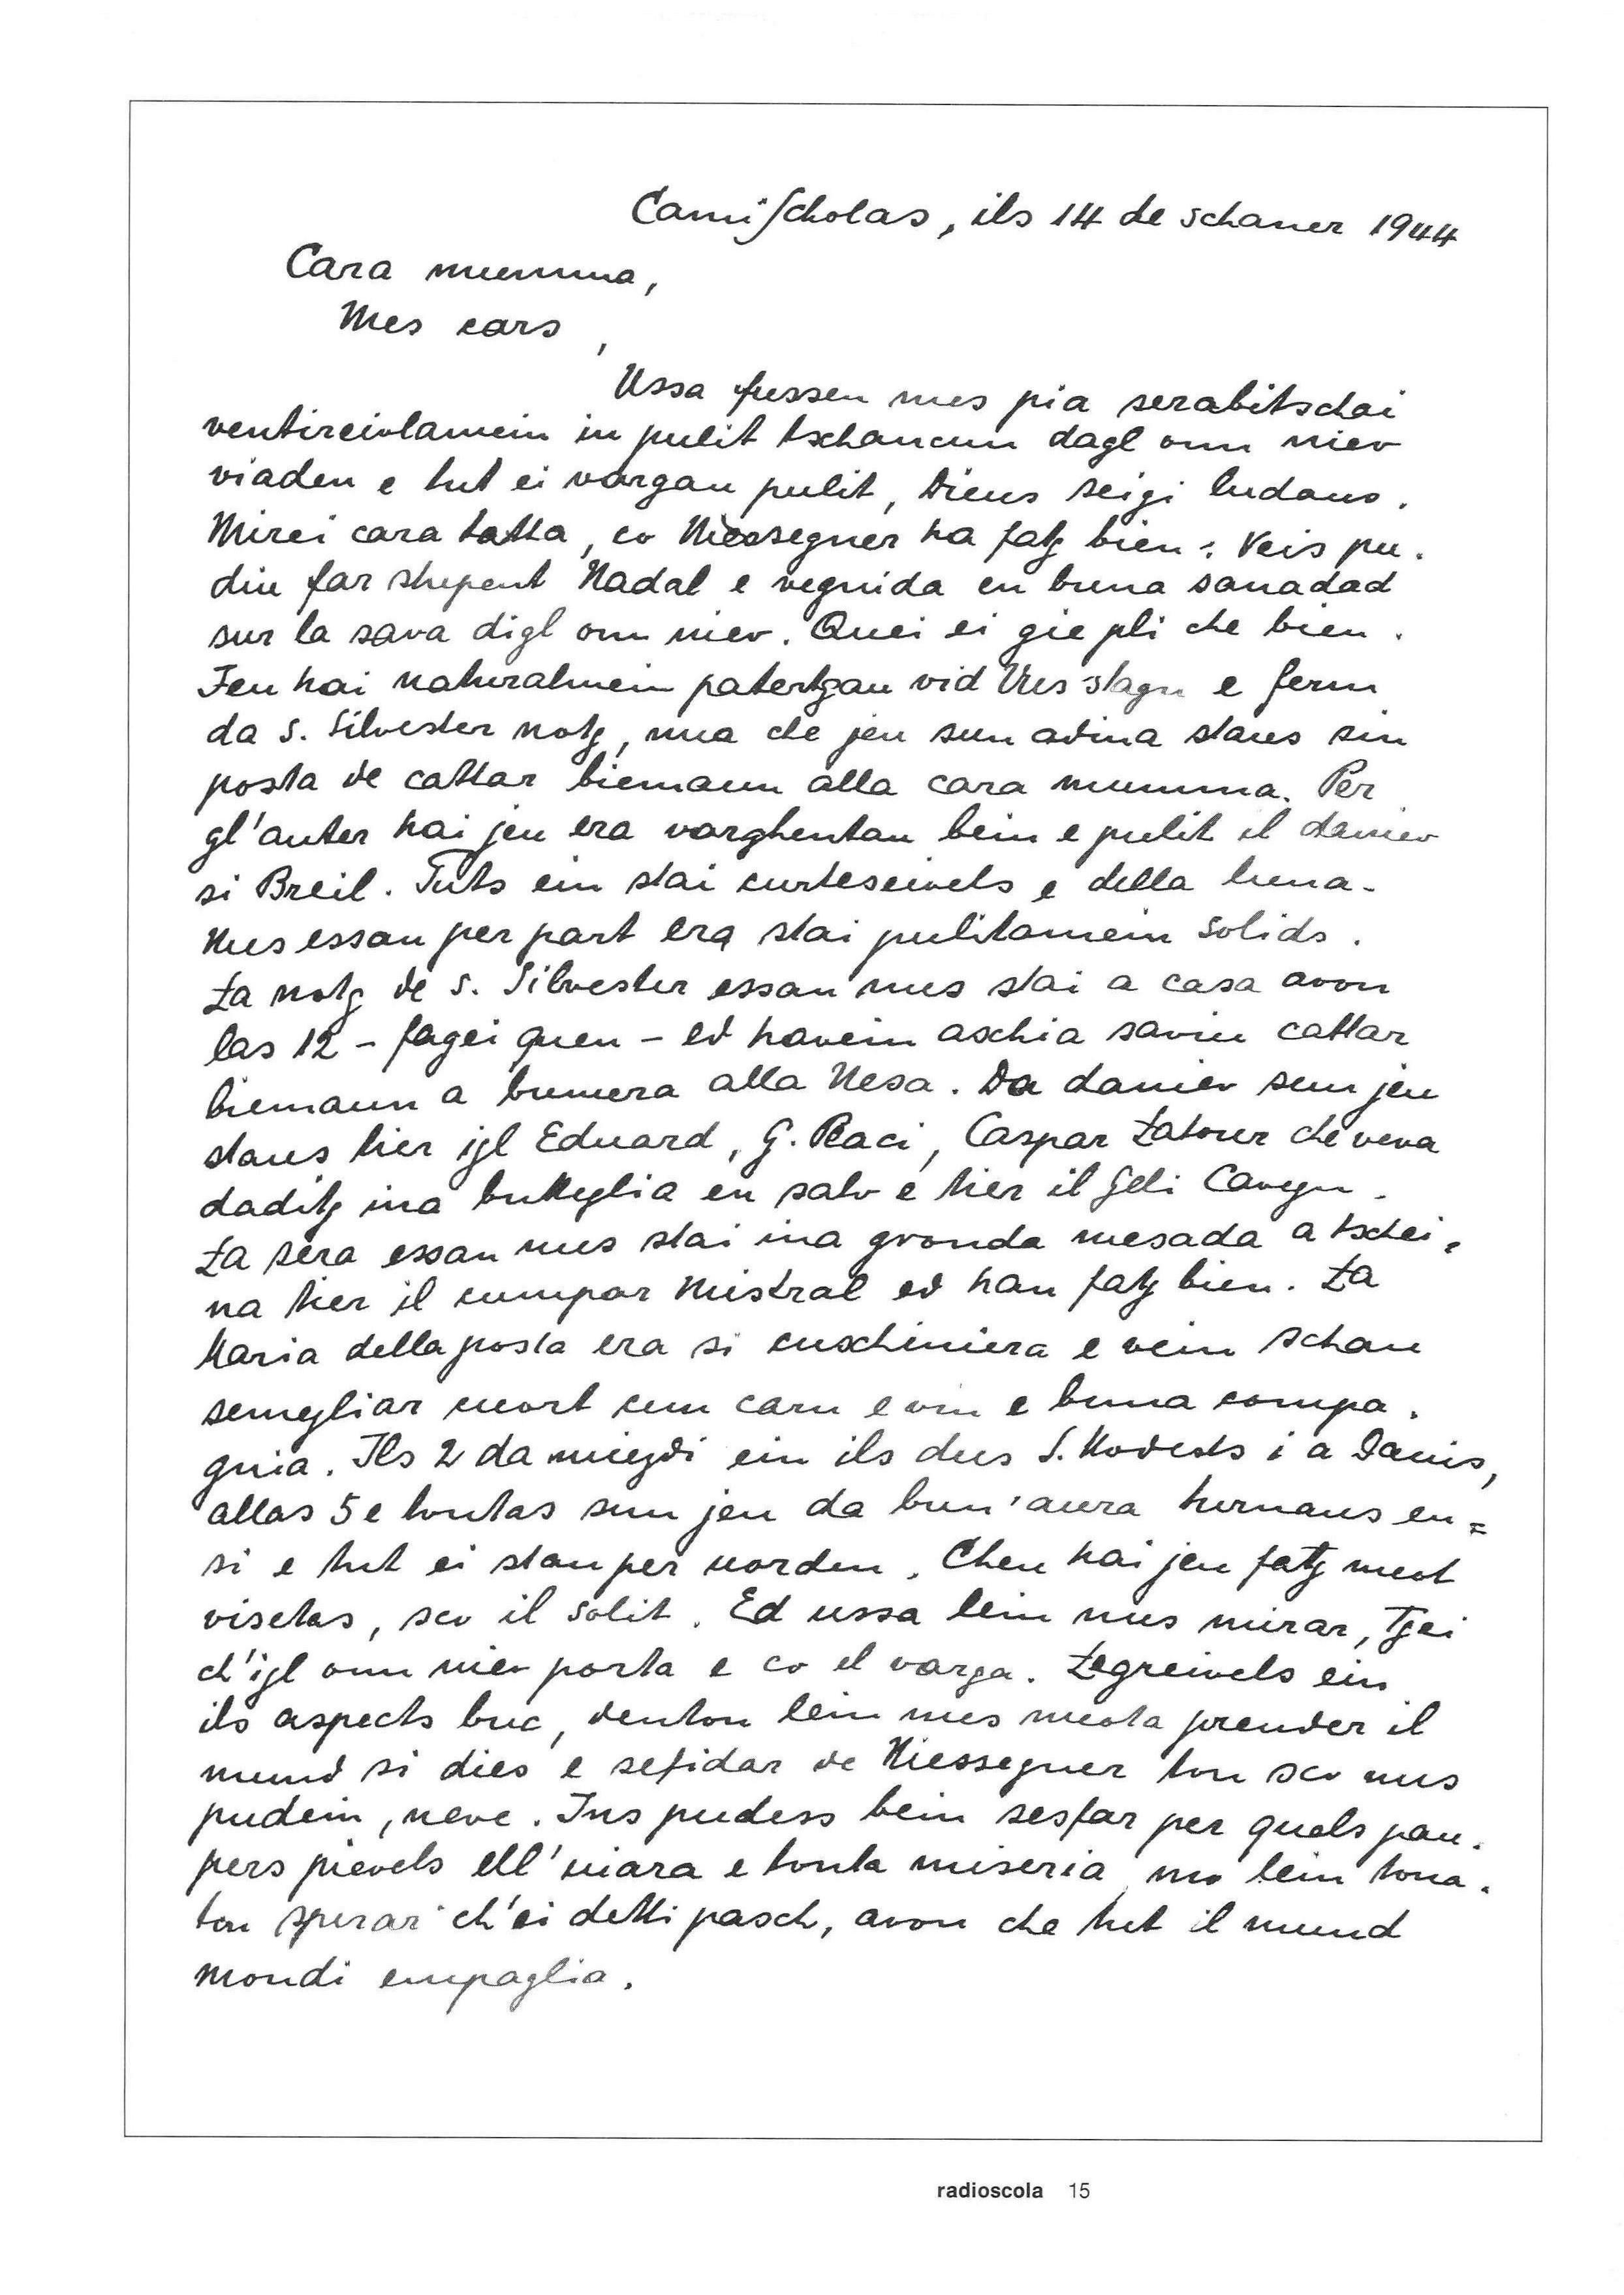 Camischolas, ils 14 de schaner 1944
Cara mumma,
Mes cars,
Ussa fussen nus pia serabitschai
ventireivlamein in pulit tschancun dagl onn niev
viaden e tut ei vargau pulit, Dieus seigi ludaus.
Mirei cara tatta, co Niessegner ha fatg bien: Veis pu-
diu far stupent Nadal e vegnida en buna sanadad
sur la sava digl onn niev. Quei ei gie pli che bien.
Jeu hai naturalmein patertgau vid Vus stagn e ferm
da s. Silvester notg, nua che jeu sun adina staus sin
posta de cattar biemaun alla cara mumma. Per
gl'auter hai jeu era varghentau bein e pulit il daniev
si Breil. Tuts ein stai curteseivels e della buna.
Nus essan per part era stai pulitamein solids.
La notg de s. Silvester essan nus stai a casa avon
las 12 - fagei quen - ed havein aschia saviu cattar
biemaun a bunura alla Nesa. Da daniev sun jeu
staus tier igl Eduard, G. Placi, Caspar Latour che veva
daditg ina butteglia en salv e tier il Geli Cavegn.
La sera essan nus stai ina gronda mesada a tschei-
na tier il cumpar Mistral ed han fatg bien. La
Maria della posta era si cuschiniera e vein schau
semegliar uort cun carn e vin e buna compa-
gnia. Ils 2 da miezdi ein ils dus S. Modests i a Danis,
allas 5 e tontas sun jeu da bun'aura turnaus en=
si e tut ei stau per uorden. Cheu hai jeu fatg meot
visetas, sco il solit. Ed ussa lein nus mirar, tgei
ch'igl onn niev porta e co el varga. Legreivels ein
ils aspects buc, denton lein nus meota prender il
mund si dies e sefidar de Niessegner ton sco nus
pudein, neve. Ins pudess bein sesfar per quels pau-
pers pievels ell'uiara e tonta miseria, mo lein tona-
ton sperar ch'ei detti pasch, avon che tut il mund
mondi empaglia.
radioscola 15